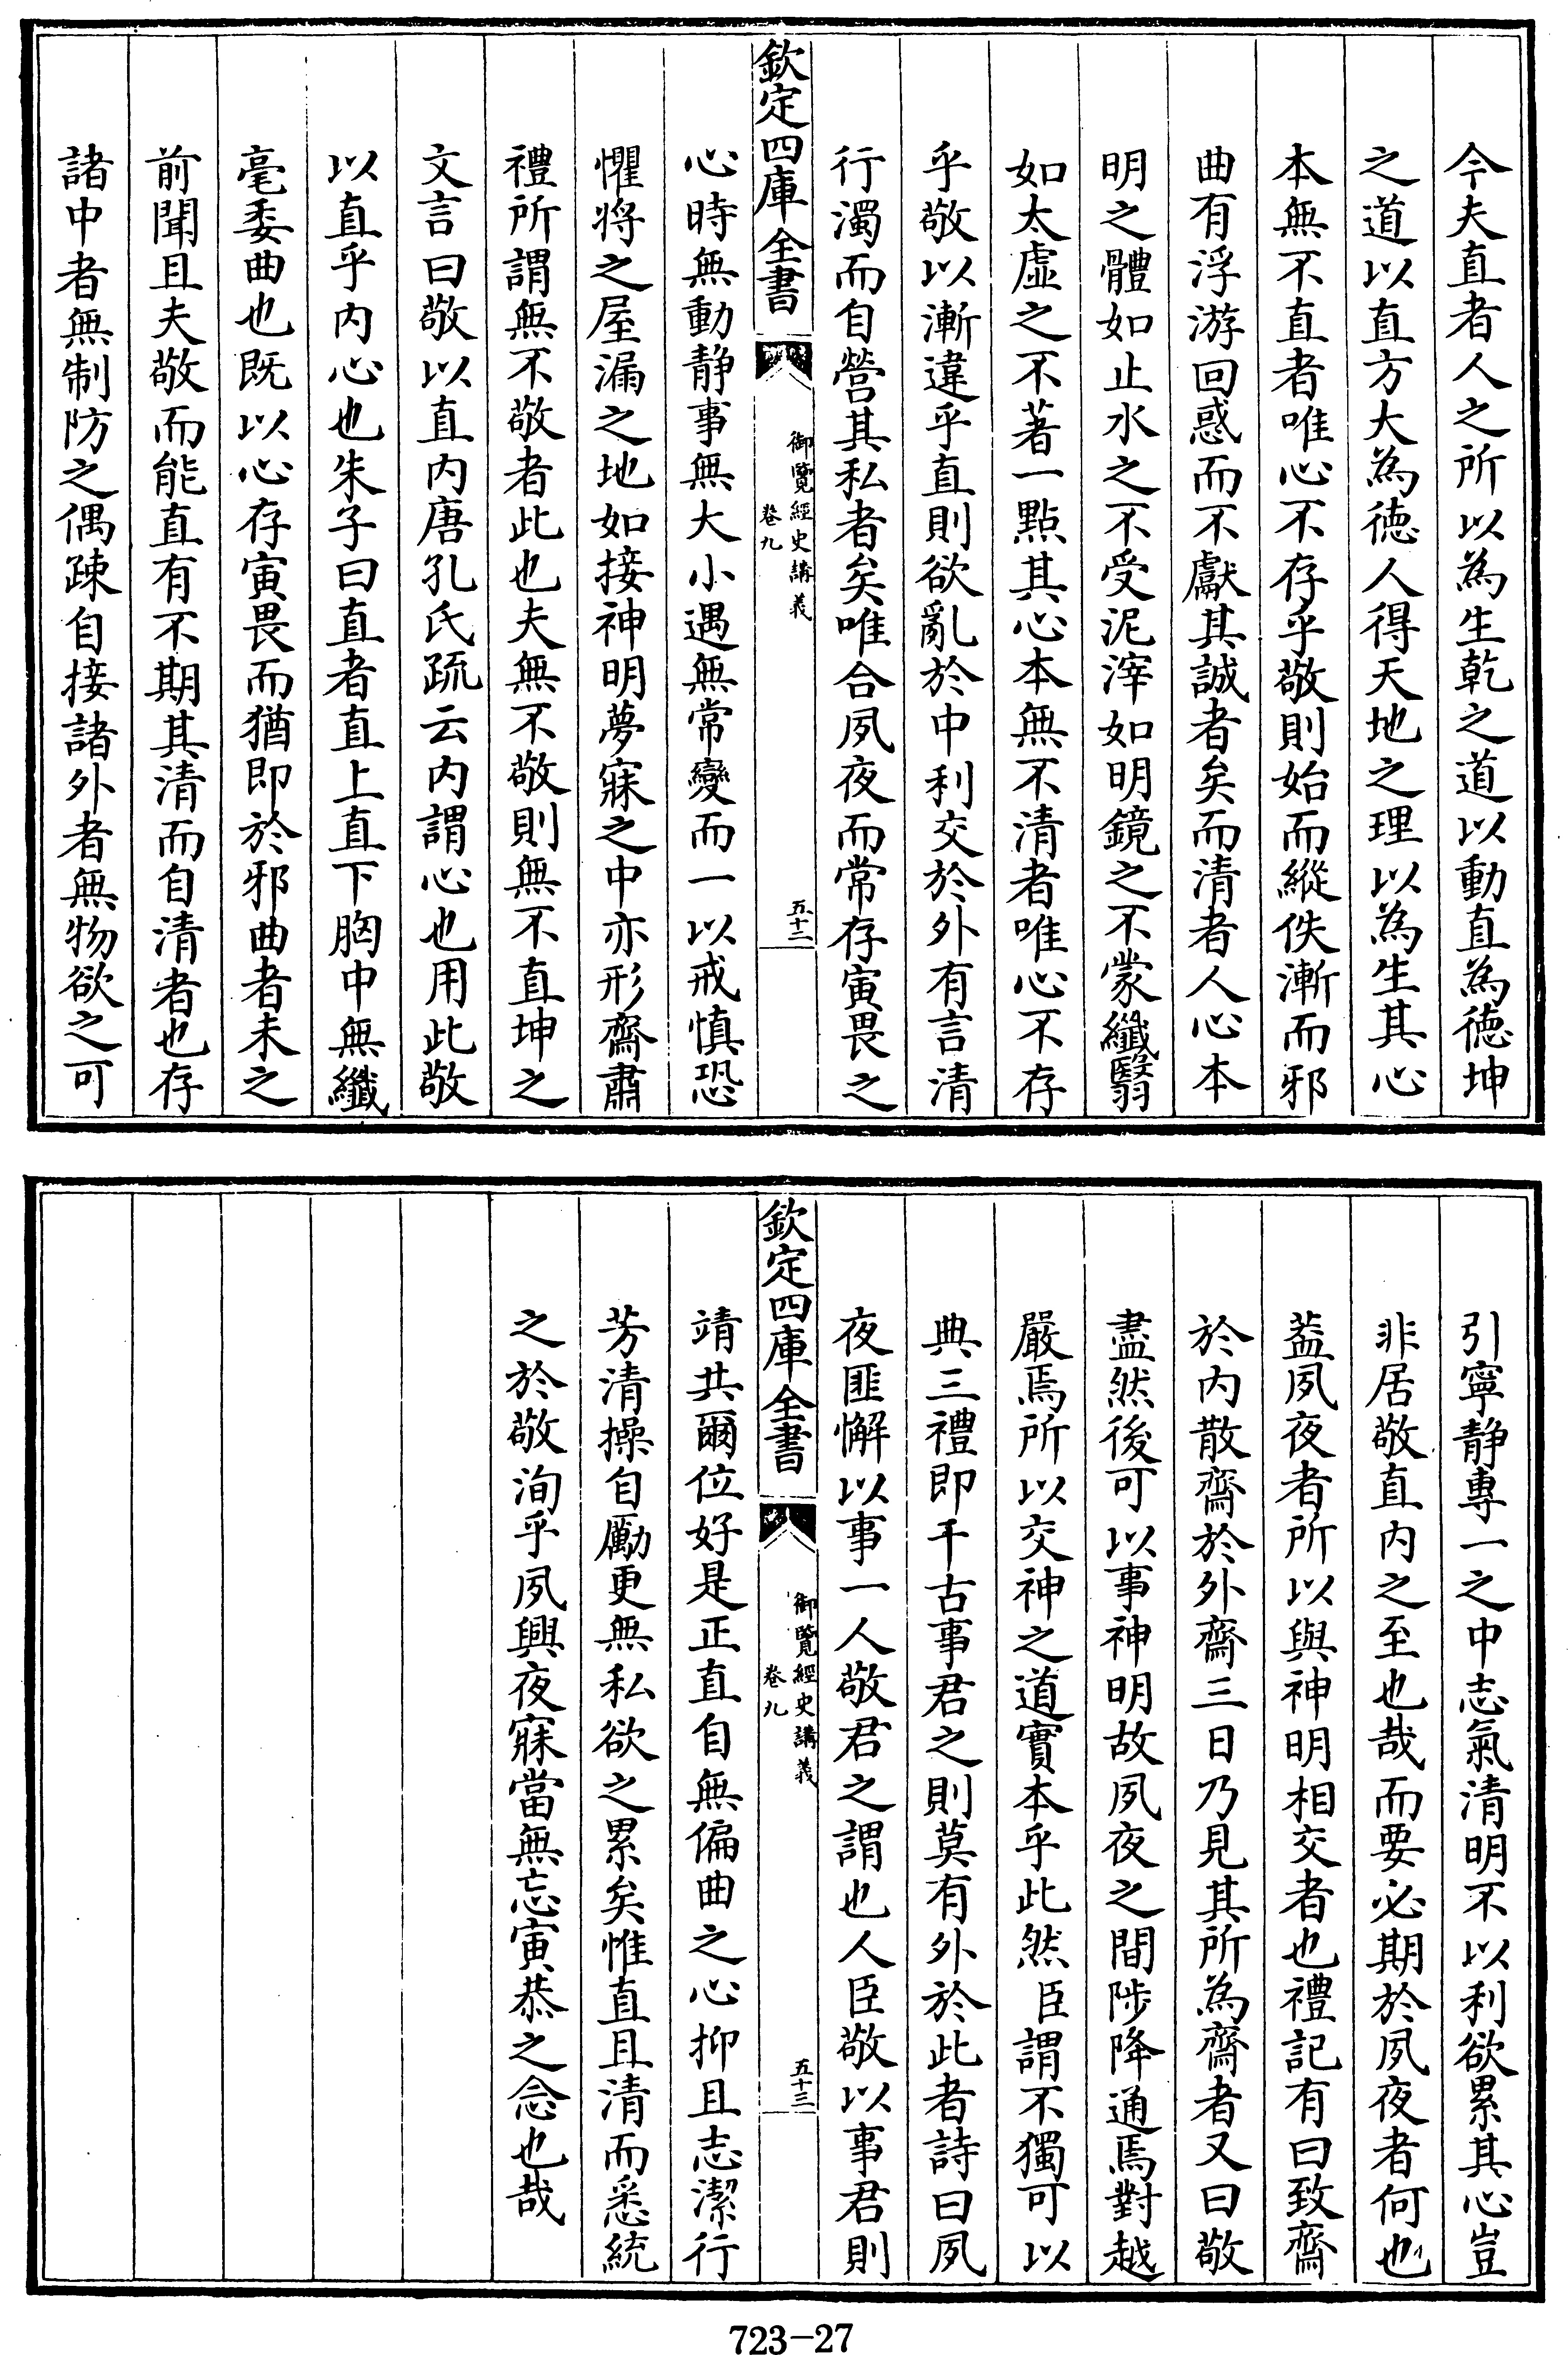 今夫直者人之所以為生乾之道以動直為徳坤
之道以直方大為徳人得天地之理以為生其心
本無不直者唯心不存乎敬則始而縱佚漸而邪
曲有浮游回惑而不獻其誠者矣而清者人心本
明之體如止水之不受泥滓如明鏡之不蒙纖翳
如太虛之不著一點其心本無不清者唯心不存
乎敬以漸違乎直則欲亂於中利交於外有言清
行濁而自營其私者矣唯合夙夜而常存寅畏之
欽定四庫全書
御覽經史講義
卷九
五十二
心時無動靜事無大小遇無常變而一以戒慎恐
懼將之屋漏之地如接神明夢寐之中亦形齋肅
禮所謂無不敬者此也夫無不敬則無不直坤之
文言曰敬以直内唐孔氏疏云内謂心也用此敬
以直乎内心也朱子曰直者直上直下胸中無纖
毫委曲也既以心存寅畏而猶即於邪曲者未之
前聞且夫敬而能直有不期其清而自清者也存
諸中者無制防之偶疎自接諸外者無物欲之可
引寧静專一之中志氣清明不以利欲累其心豈
非居敬直内之至也哉而要必期於夙夜者何也
葢夙夜者所以與神明相交者也禮記有曰致齋
於内散齋於外齋三日乃見其所為齋者又曰敬
盡然後可以事神明故夙夜之間陟降通焉對越
嚴焉所以交神之道實本乎此然臣謂不獨可以
典三禮即千古事君之則莫有外於此者詩曰夙
夜匪懈以事一人敬君之謂也人臣敬以事君則
欽定四庫全書
御覽經史講義
卷九
五十三
靖共爾位好是正直自無偏曲之心抑且志潔行
芳清操自勵更無私欲之累矣惟直且清而悉統
之於敬洵乎夙興夜寐當無忘寅恭之念也哉
723-27